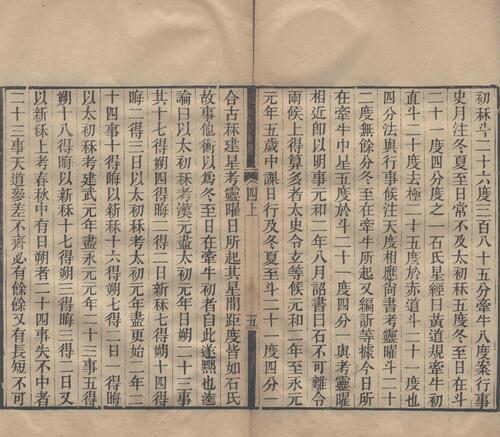 初秝斗二十六度三百八十五分牽牛八度案行事
史月注冬夏至日常不及太初秝五度冬至日在斗
二十一度四分度之一石氏星經曰黃道規牽牛初
直斗二十度去極二十五度於赤道斗二十一度也
四分法與行事候注天度相應尚書考靈曜斗二十
二度無餘分冬至在牽牛所起又編訢等據今日所
在牽牛中星五度於斗二十一度四分一與考靈曜
相近卽以明事元和二年八月詔書曰石不可離令
兩候上得算多者太史令立等候元和二年至永
元年五歲中課日行及冬夏至斗二十一度四分一
四上
五
合古秝建星考靈曜日所起其星間距度皆如石氏
故事他術以爲冬至日在牽牛初者自此遂黜也逵
論曰以太初秝考漢元盡太初元年日朔二十三事
其十七得朔四得晦二得二日新秝七得朔十四得
晦二得三日以太初秝考太初元年盡更始二年二
十四事十得晦以新秝十六得朔七得二日一得晦
以太初秝考建武元年盡永元元年二十三事五得
朔十八得晦以新秝十七得朔三得晦三得二日又
以新秝上考春秋中有日朔者二十四事失不中者
二十三事天道參差不齊必有餘餘又有長短不可